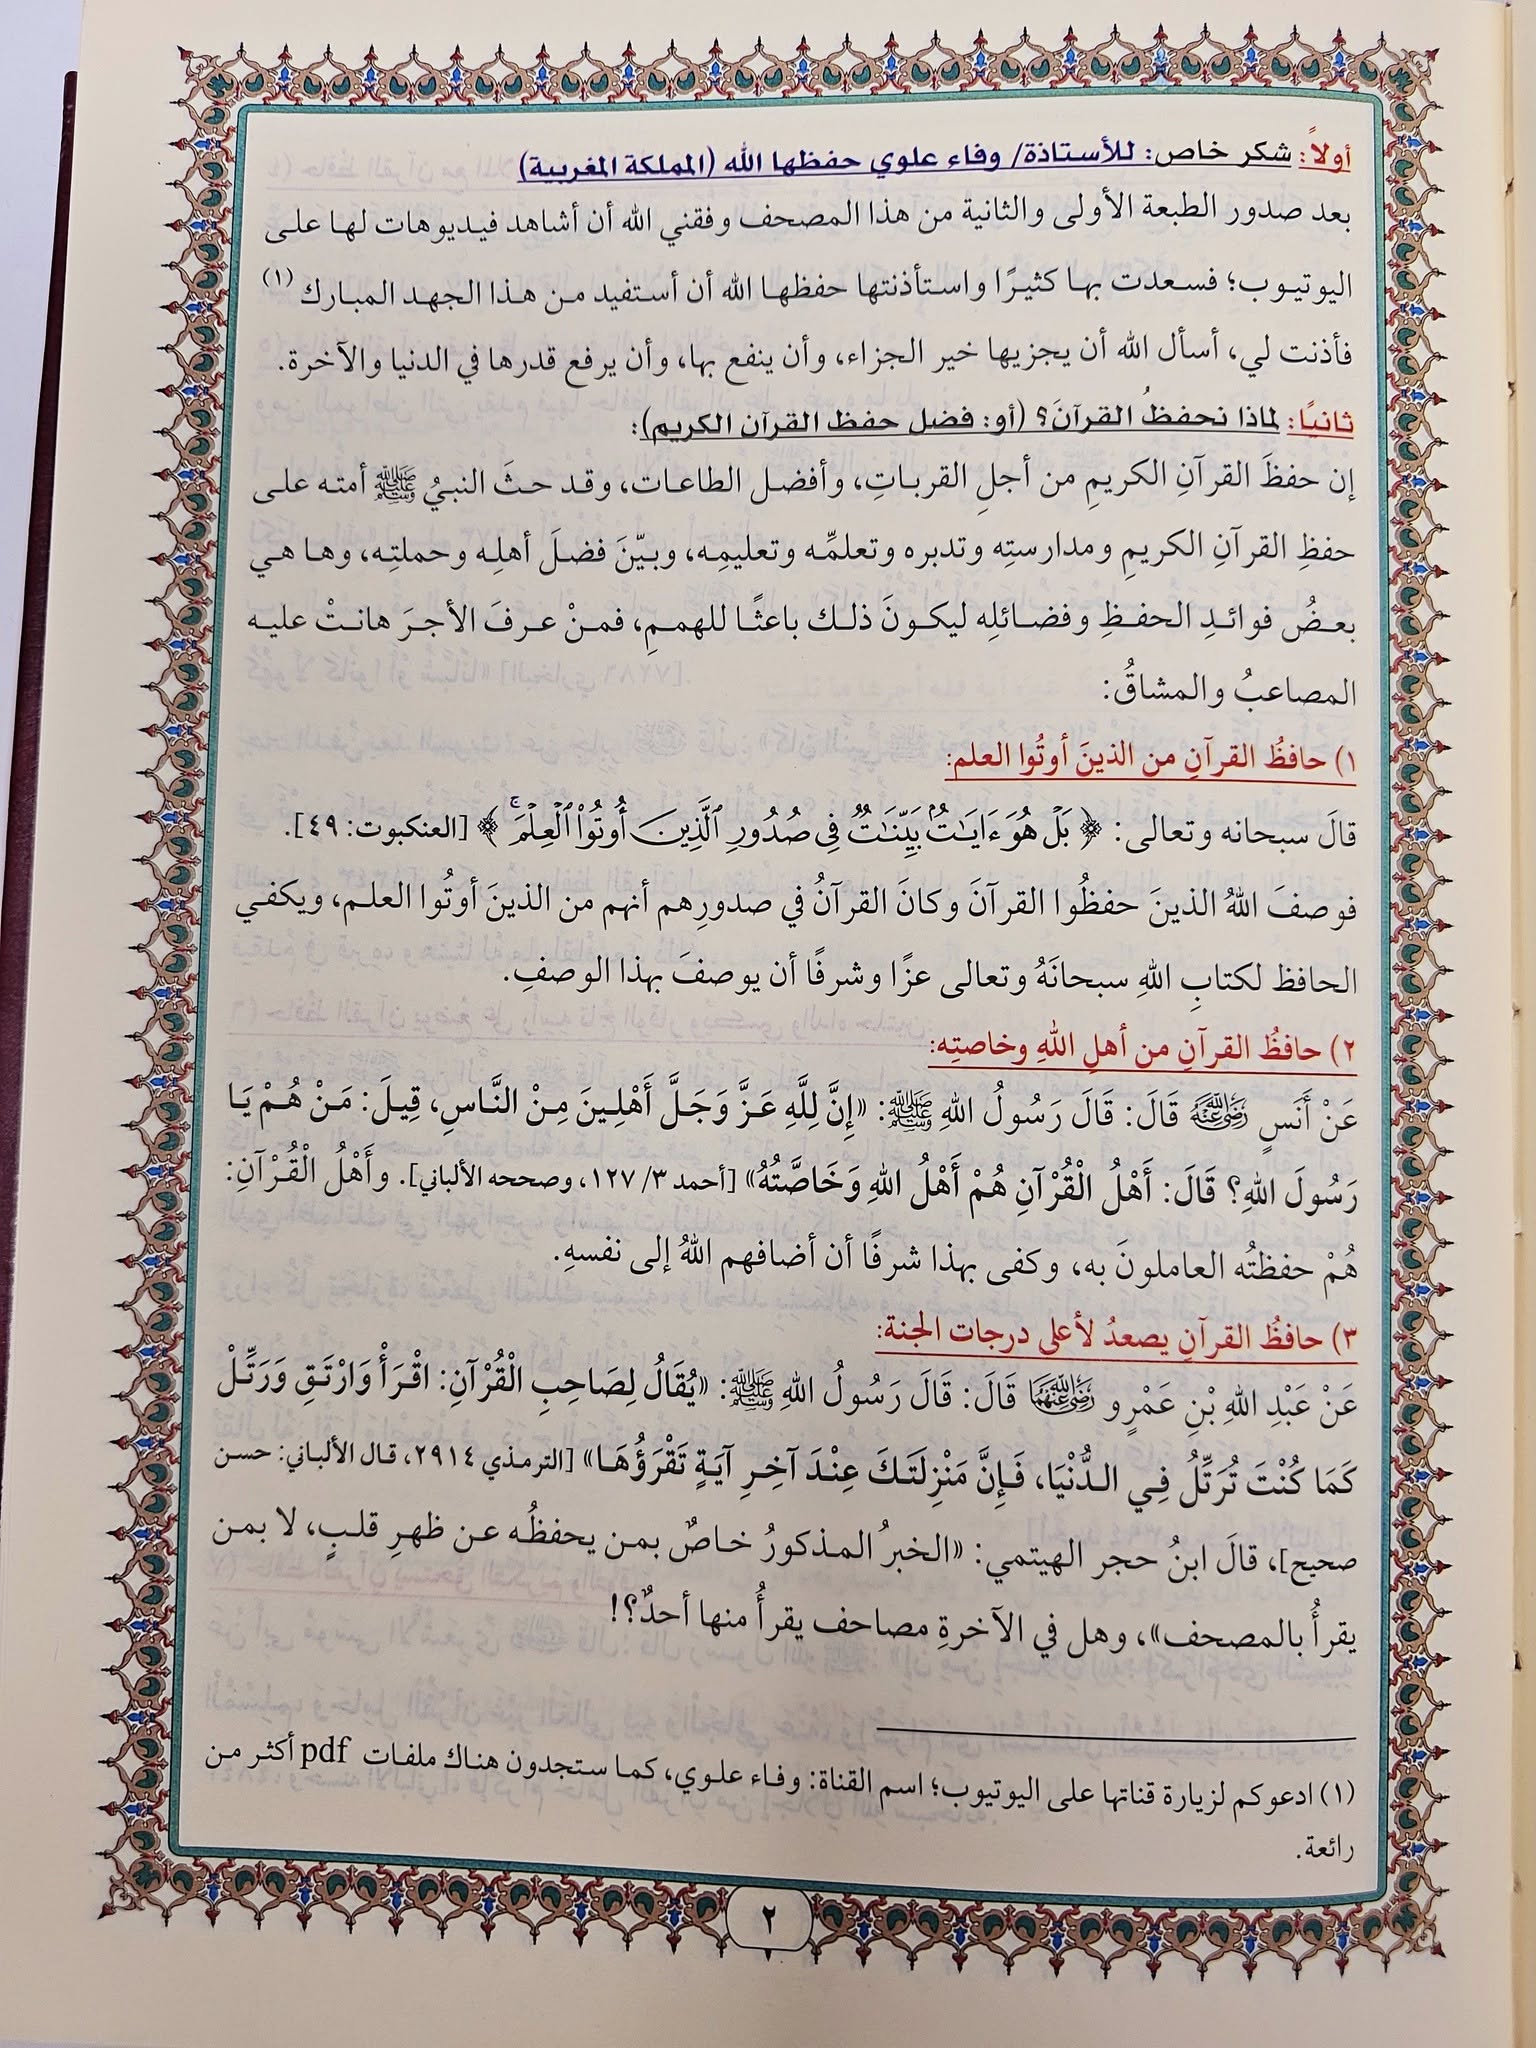 أولاً: شكر خاص: للأستاذة/ وفاء علوي حفظها الله (المملكة المغربية)
بعد صدور الطبعة الأولى والثانية من هذا المصحف وفقني الله أن أشاهد فيديوهات لها على
اليوتيوب؛ فسعدت بها كثيرًا واستأذنتها حفظها الله أن أستفيد من هذا الجهد المبارك (١)
فأذنت لي، أسأل الله أن يجزيها خير الجزاء، وأن ينفع بها، وأن يرفع قدرها في الدنيا والآخرة.
ثانيًا: لماذا نحفظُ القرآنَ؟ (أو: فضل حفظ القرآن الكريم):
إن حفظَ القرآنِ الكريمِ من أجلِ القرباتِ، وأفضل الطاعات، وقد حثَ النبيُ ﷺ أمته على
حفظِ القرآنِ الكريمِ ومدارستِه وتدبره وتعلمِّه وتعليمِه، وبيّنَ فضلَ أهلِه وحملتِه، وها هي
بعضُ فوائدِ الحفظِ وفضائلِه ليكونَ ذلك باعثًا للهممِ، فمنْ عرفَ الأجرَ هانتْ عليه
المصاعبُ والمشاقُ:
١) حافظُ القرآنِ من الذينَ أوتُوا العلم:
قالَ سبحانه وتعالى: ﴿ بَلۡ هُوَ ءَايَٰتُۢ بَيِّنَٰتٞ فِي صُدُورِ ٱلَّذِينَ أُوتُواْ ٱلۡعِلۡمَۚ ﴾ [العنكبوت: ٤٩].
فوصفَ اللهُ الذينَ حفظُوا القرآنَ وكانَ القرآنُ في صدورِهم أنهم من الذينَ أوتُوا العلم، ويكفي
الحافظ لكتابِ اللهِ سبحانَهُ وتعالى عزًا وشرفًا أن يوصفَ بهذا الوصفِ.
٢) حافظُ القرآنِ من أهلِ اللهِ وخاصتِه:
عَنْ أَنَسٍ رَضِيَ اللَّهُ عَنْهُ قَالَ: قَالَ رَسُولُ اللهِ ﷺ: «إِنَّ لِلَّهِ عَزَّ وَجَلَّ أَهْلِينَ مِنْ النَّاسِ، قِيلَ: مَنْ هُمْ يَا
رَسُولَ اللهِ؟ قَالَ: أَهْلُ الْقُرْآنِ هُمْ أَهْلُ اللهِ وَخَاصَّتُهُ» [أحمد ٣/ ١٢٧، وصححه الألباني]. وأَهْلُ الْقُرْآنِ:
هُمْ حفظتُه العاملونَ به، وكفى بهذا شرفًا أن أضافهم اللهُ إلى نفسهِ.
٣) حافظُ القرآنِ يصعدُ لأعلى درجات الجنة:
عَنْ عَبْدِ اللهِ بْنِ عَمْرٍو رَضِيَ اللَّهُ عَنْهُمَا قَالَ: قَالَ رَسُولُ اللهِ ﷺ: «يُقَالُ لِصَاحِبِ الْقُرْآنِ: اقْرَأْ وَارْتَقِ وَرَتِّلْ
كَمَا كُنْتَ تُرَتِّلُ فِي الدُّنْيَا، فَإِنَّ مَنْزِلَتَكَ عِنْدَ آخِرِ آيَةٍ تَقْرَؤُهَا» [الترمذي ٢٩١٤، قال الألباني: حسن
صحيح]، قالَ ابنُ حجر الهيتمي: «الخبرُ المذكورُ خاصٌ بمن يحفظُه عن ظهرِ قلبٍ، لا بمن
يقرأُ بالمصحف»، وهل في الآخرةِ مصاحف يقرأُ منها أحدٌ؟!
(١) ادعوكم لزيارة قناتها على اليوتيوب؛ اسم القناة: وفاء علوي، كما ستجدون هناك ملفات pdf أكثر من
رائعة.
٢